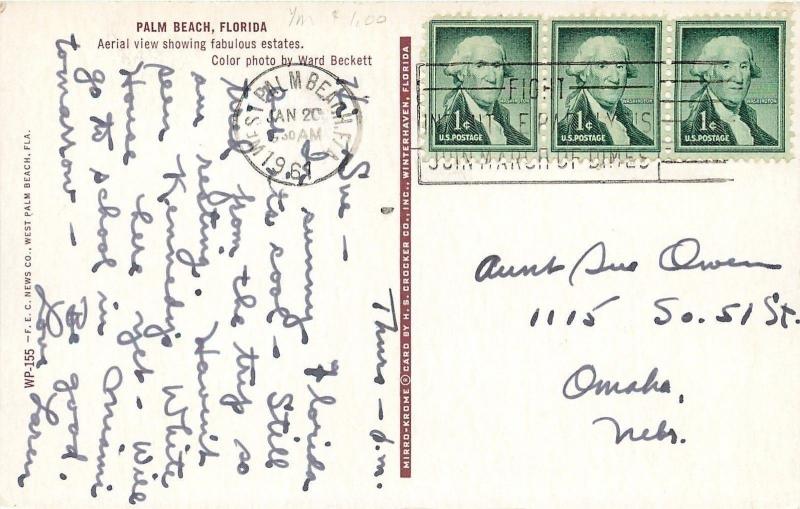 Ym $1.00
PALM BEACH, FLORIDA
Aerial view showing fabulous estates.
Color photo by Ward Beckett
WEST PALM BEACH, FLA.
JAN 20
30 AM
1961
FIGHT
INFANTILE PARALYSIS
JOIN MARCH OF DIMES
1¢ WASHINGTON
U.S. POSTAGE
1¢ WASHINGTON
U.S. POSTAGE
1¢ WASHINGTON
U.S. POSTAGE
Thurs - A.M.
Hi Sue -
sunny Florida
its cool - Still
from the trip so
am resting. Haven't
seen Kennedy's White
House here yet - Will
go to school in Miami
tomarrow -
Be good.
Love Laren
WP-155 — F. E. C. NEWS CO., WEST PALM BEACH, FLA.
MIRRO-KROME® CARD BY H. S. CROCKER CO., INC., WINTERHAVEN, FLORIDA
Aunt Sue Owen
1115 So. 51 St.
Omaha,
Nebr.